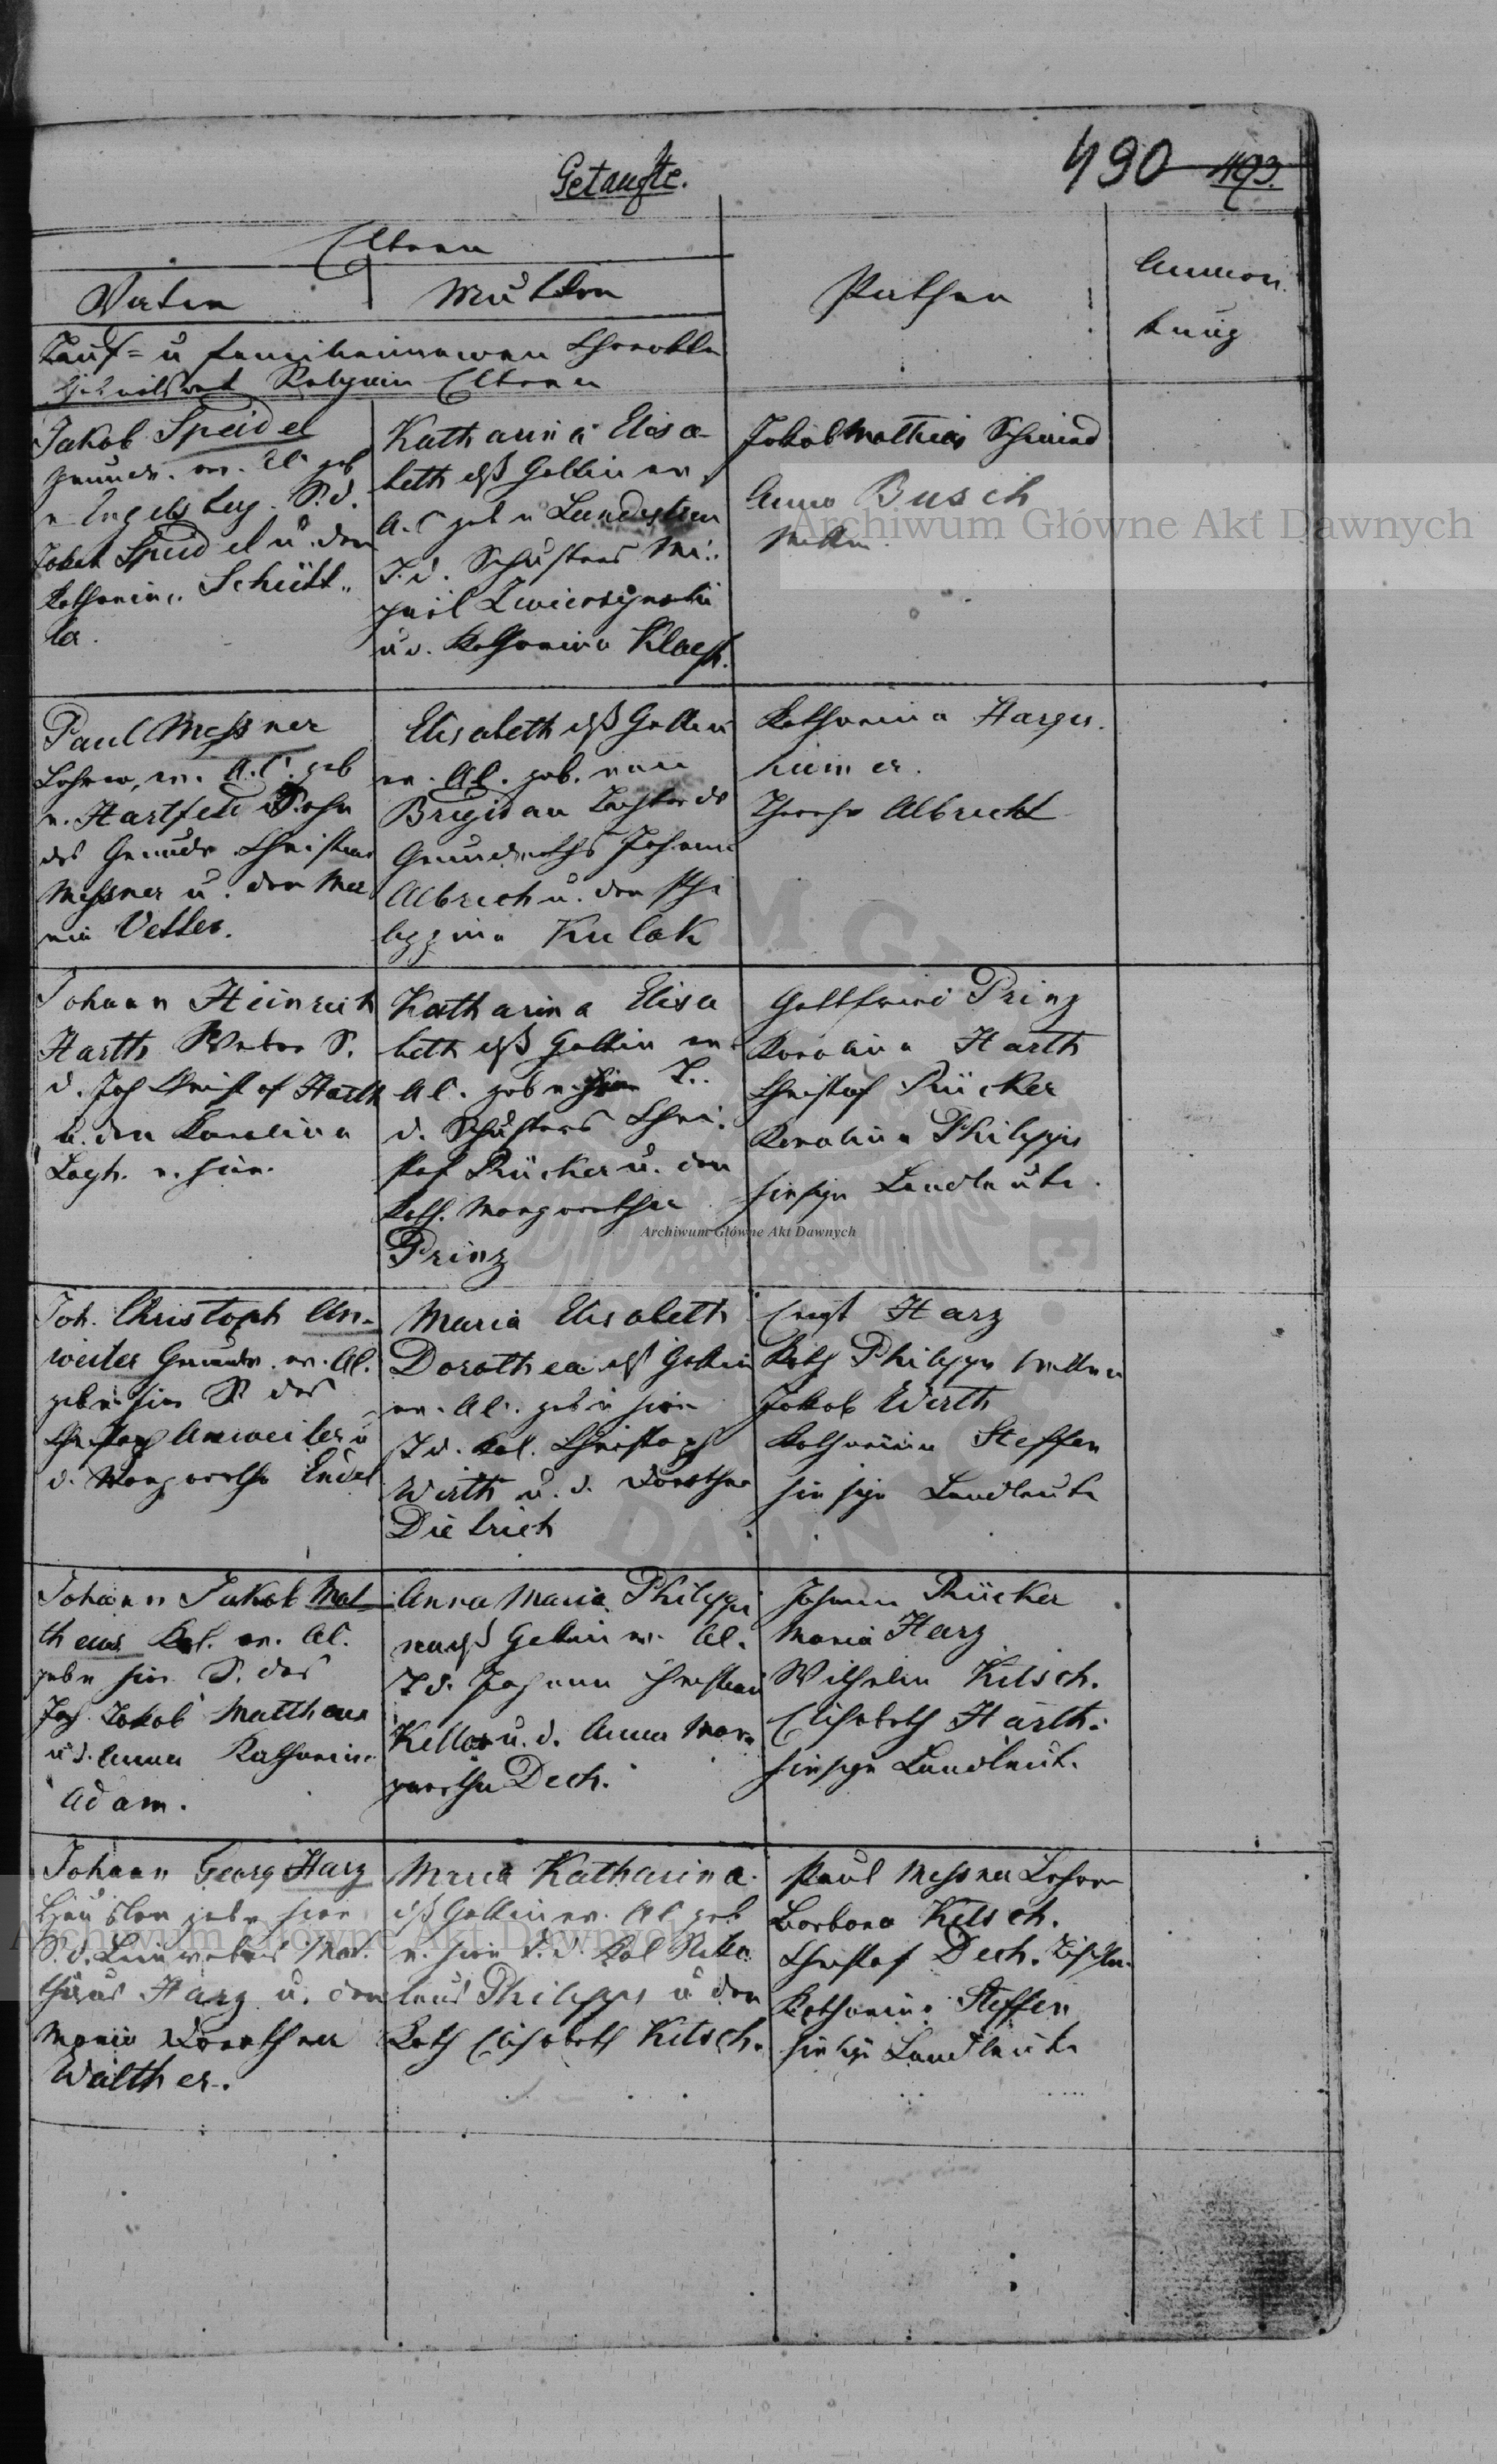 Getaufte.
490 493.
Eltern
Vater
Mutter
Pathen
Anmer
kung
Tauf = u Familiennamen Charakter
Religion Eltern
Jakob Speidel
Grundw. ev. AC geb
n. Engelsberg. S. d.
Jakob Speidel u. der
Katharina Schütt
la.
Katharina Elisa
beth dß Gattin ev.
A.C geb n Landestreu
T. d. Schusters Mi
u d. Katharina Klaes.
Jakob Mathias Schmied
Anna Busch
Paul Messner
Lehrer, ev. A.C. geb
n. Hartfeld Sohn
des Grundw Christian
Messner u. der Ma
ria Vetter.
Elisabeth dß Gattin
ev. AC. geb. von
Brigidau Tochter des
Grundwths Johann
Albrech u. der Phi
lippina Kulak
Katharina Harges
heimer.
Therese Albrecht
Johann Heinrich
Harth Weber S.
d. Joh Christof Harth
u. der Karolina
n. hier.
Katharina Elisa
beth dß Gattin ev
AC. geb n. hier T.
d. Schusters Chri
stof Rücker u. der
Kath. Margaretha
Prinz
Gottfried Prinz
Karolina Harth
Christof Rücker
Karolina Philipps
hiesige Landleute.
Joh. Christoph An-
weiler Grundw. ev. AC.
geb n. hier S. des
Christoph Anweiler u
d. Margaretha Endel
Maria Elisabeth
Dorothea dß Gattin
ev. AC. geb n hier
T d. Kol. Christoph
Wirth u. d. Dorothea
Dietrich
Harz
Kath Philipps
Jakob Wirth
Katharina Steffen
hiesige Landleute
Johann Jakob Mat
theus Kol. ev. AC.
geb n hier S. des
Joh. Jakob Mattheus
u d. Anna Katharina
Adam.
Anna Maria Philippi
Gattin ev. AC.
T d. Johann Christian
Keller u. d. Anna Mar
garetha Dech.
Johann Rücker
Maria Harz
Wilhelm Kitsch.
Elisabeth Harth.
hiesige Landleute.
Johann Georg Harz
Häusler geb n hier
S. d. Leinwebers Mat
thäus Harz u. der
Maria Dorothea
Walther.
Maria Katharina
dß Gattin ev. AC geb
n. hier T. d. Kol Niko
laus Philipps u der
Kath Elisabeth Kitsch.
Paul Messner Lehrer
Barbara Kitsch.
Christof Dech. Tischler
Katharina Steffen
hiesige Landleute
Archiwum Główne Akt Dawnych
Archiwum Główne Akt Dawnych
Archiwum Główne Akt Dawnych